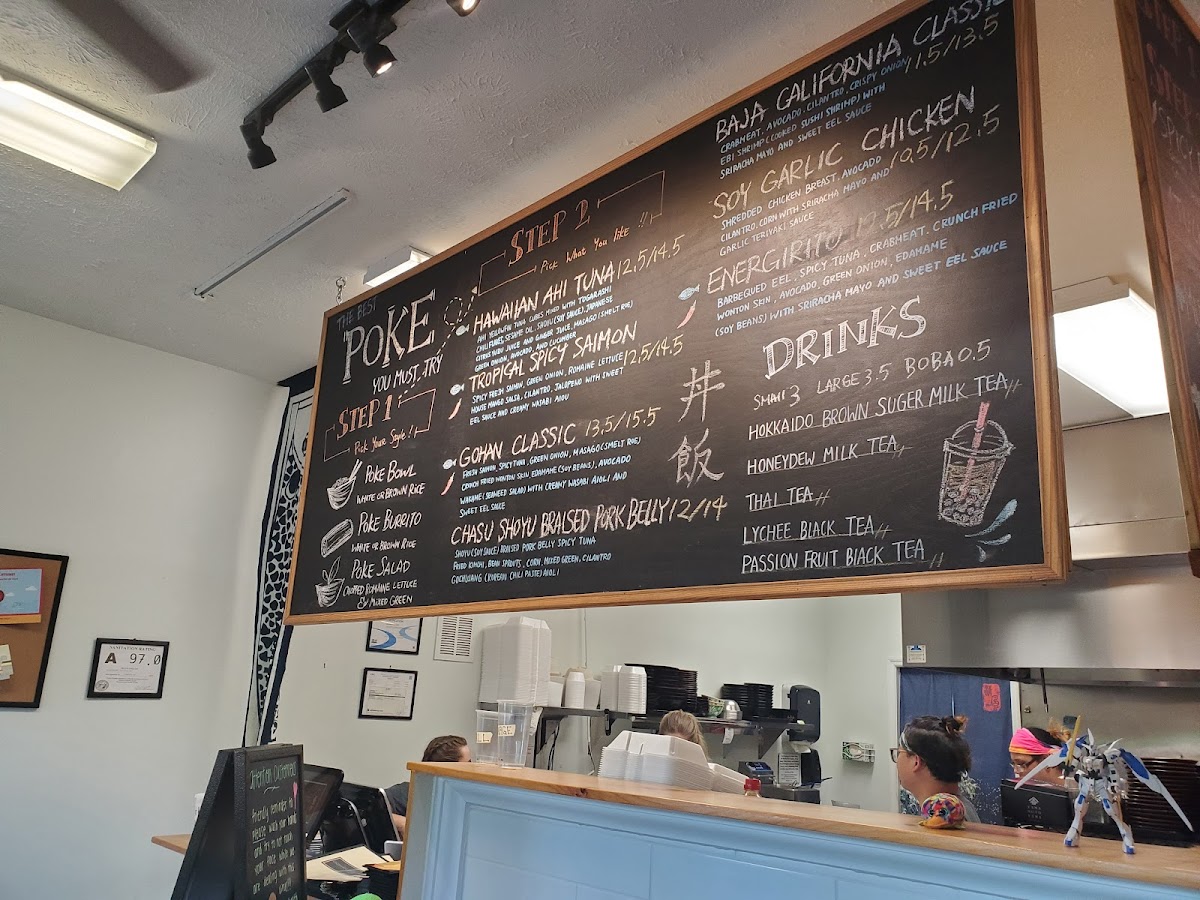 THE BEST
POKE
YOU MUST TRY
STEP 1
Pick Your Style!
POKE BOWL
WHITE OR BROWN RICE
POKE BURRITO
WHITE OR BROWN RICE
POKE SALAD
CHOPPED ROMAINE LETTUCE
& MIXED GREEN
STEP 2
Pick What You like !!
HAWAIIAN AHI TUNA 12.5/14.5
AHI YELLOWFIN TUNA CUBES MIXED WITH TOGARASHI
CHILI FLAKES, SESAME OIL, SHOYU (SOY SAUCE), JAPANESE
CITRUS YUZU JUICE AND GINGER JUICE, MASAGO (SMELT ROE)
GREEN ONION, AVOCADO, AND CUCUMBER
TROPICAL SPICY SALMON
12.5/14.5
SPICY FRESH SALMON, GREEN ONION, ROMAINE LETTUCE
HOUSE MANGO SALSA, CILANTRO, JALAPENO WITH SWEET
EEL SAUCE AND CREAMY WASABI AIOLI
GOHAN CLASSIC 13.5/15.5
FRESH SALMON, SPICY TUNA, GREEN ONION, MASAGO (SMELT ROE)
CRUNCH FRIED WONTON SKIN, EDAMAME (SOY BEANS), AVOCADO
WAKAME (SEAWEED SALAD) WITH CREAMY WASABI AIOLI AND
SWEET EEL SAUCE
CHASU SHOYU BRAISED PORK BELLY 12/14
SHOYU (SOY SAUCE) BRAISED PORK BELLY SPICY TUNA
FRIED KIMCHI, BEAN SPROUTS, CORN, MIXED GREEN, CILANTRO
GUCHUJANG (KOREAN CHILI PASTE) AIOLI
丼
飯
BAJA CALIFORNIA CLASSIC
11.5/13.5
CRABMEAT, AVOCADO, CILANTRO, CRISPY ONION
EBI SHRIMP (COOKED SUSHI SHRIMP) WITH
SRIRACHA MAYO AND SWEET EEL SAUCE
SOY GARLIC CHICKEN
10.5/12.5
SHREDDED CHICKEN BREAST, AVOCADO
CILANTRO, CORN WITH SRIRACHA MAYO AND
GARLIC TERIYAKI SAUCE
ENERGIRITO 12.5/14.5
BARBEQUED EEL, SPICY TUNA, CRABMEAT, CRUNCH FRIED
WONTON SKIN, AVOCADO, GREEN ONION, EDAMAME
(SOY BEANS) WITH SRIRACHA MAYO AND SWEET EEL SAUCE
DRINKS
SMALL 3 LARGE 3.5 BOBA 0.5
HOKKAIDO BROWN SUGER MILK TEA
HONEYDEW MILK TEA
THAI TEA
LYCHEE BLACK TEA
PASSION FRUIT BLACK TEA
SANITATION RATING
A 97.0
Attention Customers
Friendly reminder to
please wash your hand
and try to not touch
your face while we
are dealing with this